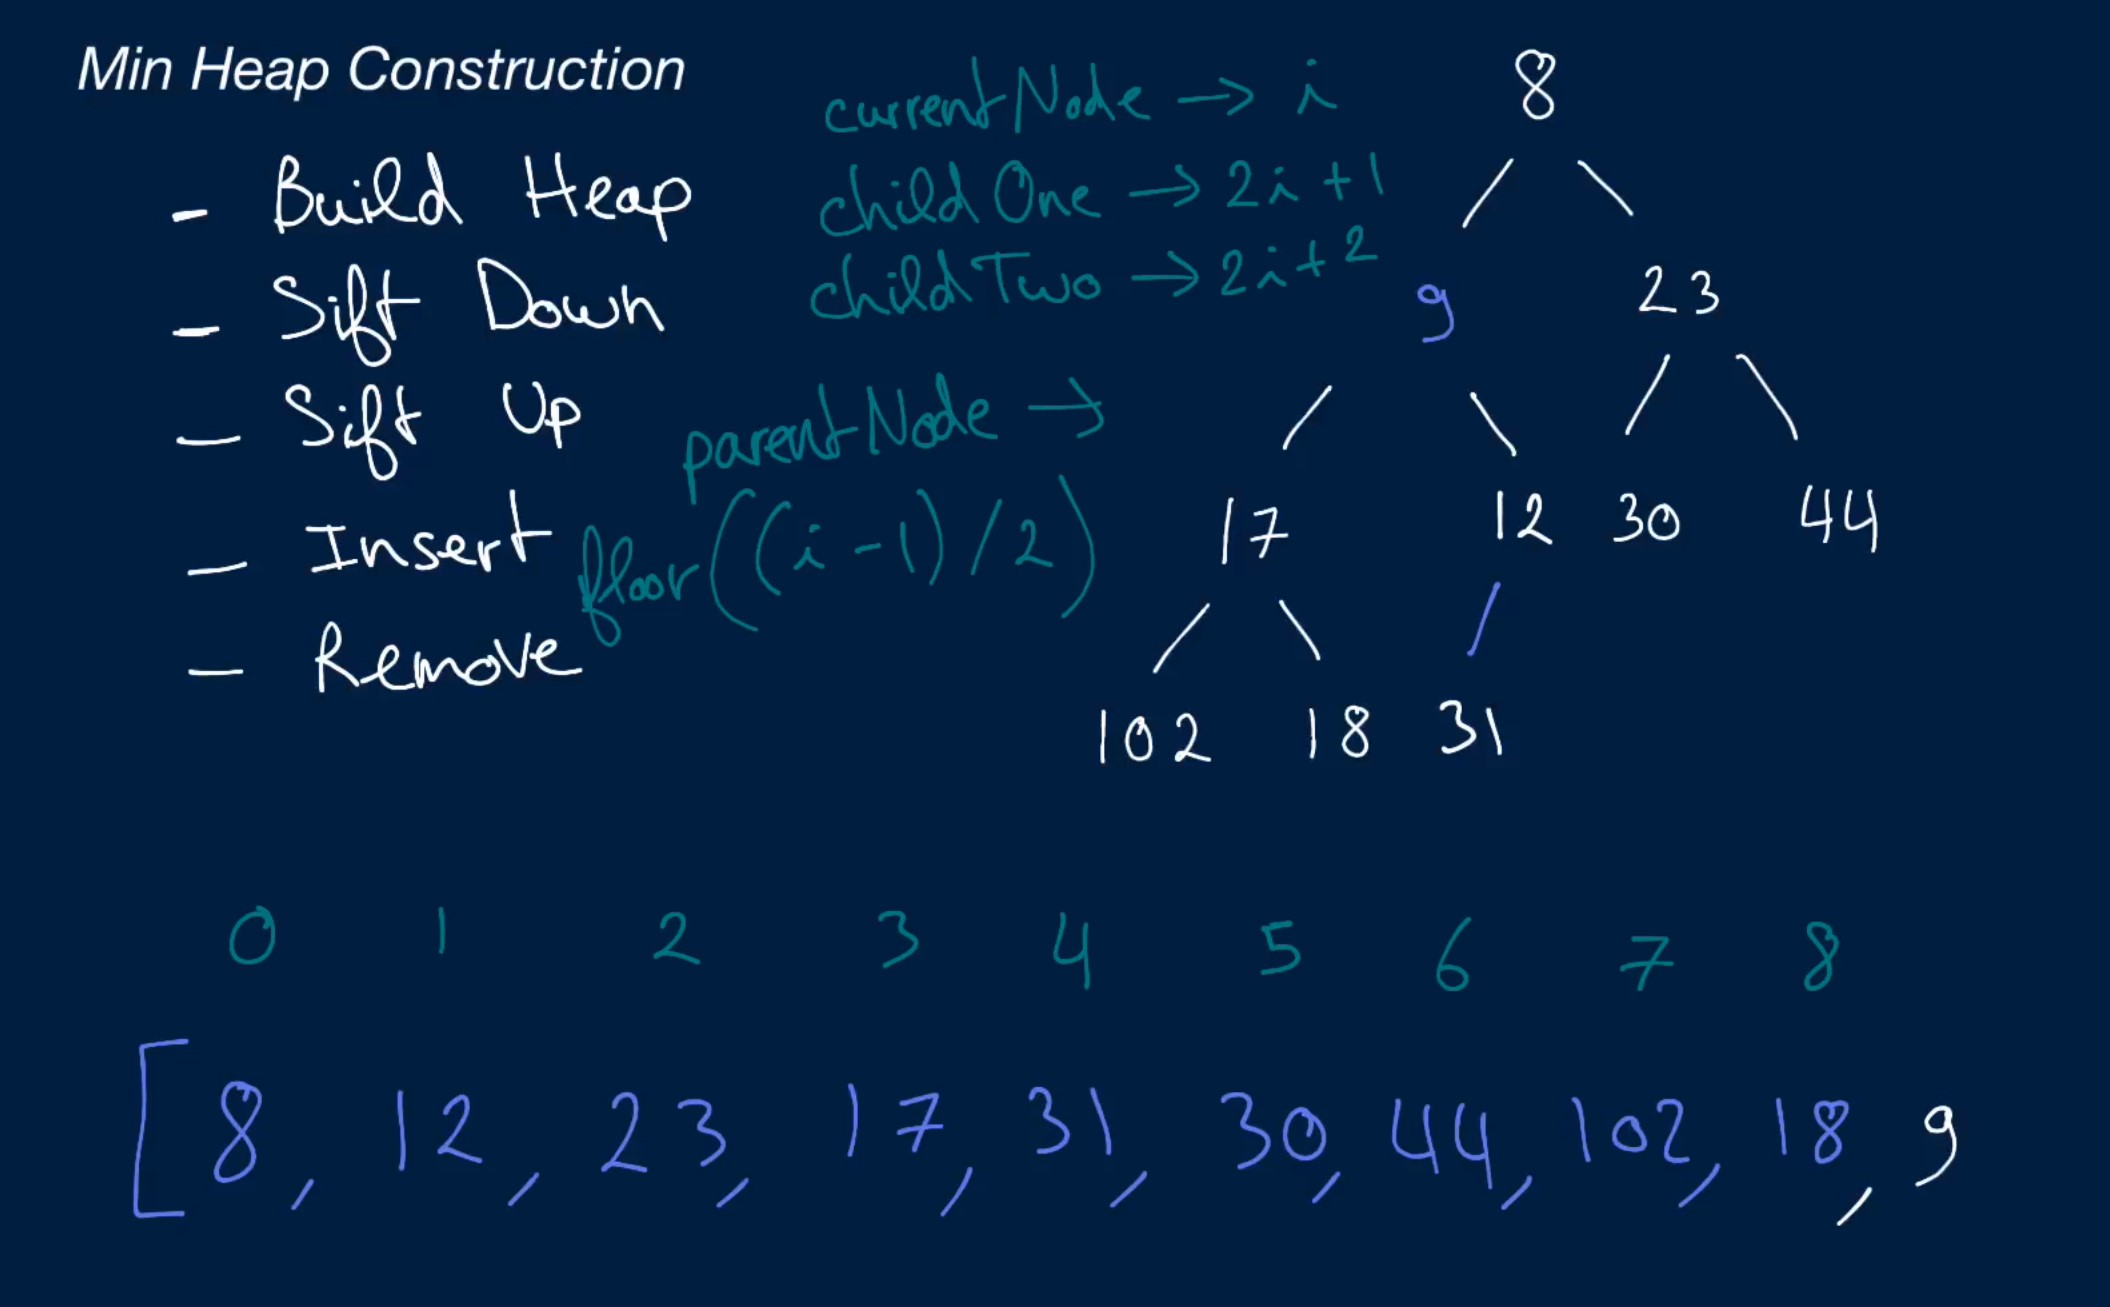 Min Heap Construction
- Build Heap
- Sift Down
- Sift Up
- Insert
- Remove
currentNode → i
childOne → 2i+1
childTwo → 2i+2
parentNode →
floor((i-1)/2)
8
9 23
17 12 30 44
102 18 31
0 1 2 3 4 5 6 7 8
[8, 12, 23, 17, 31, 30, 44, 102, 18, 9